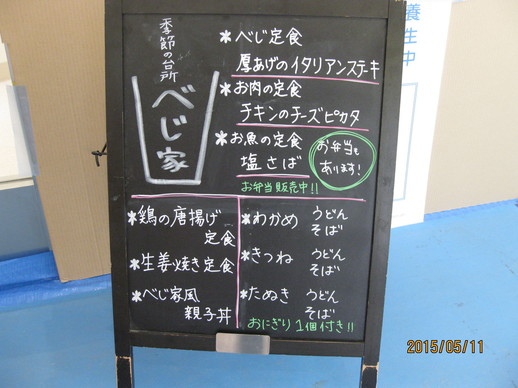 季節の台所
べじ家
*べじ定食
厚あげのイタリアンステーキ
*お肉の定食
チキンのチーズピカタ
*お魚の定食
塩さば
お弁当も
あります!
お弁当販売中!!
*鶏の唐揚げ
定食
*生姜焼き定食
*べじ家風
親子丼
*わかめ うどん
そば
*きつね うどん
そば
*たぬき うどん
そば
おにぎり1個付き!!
養
生
中
2015/05/11